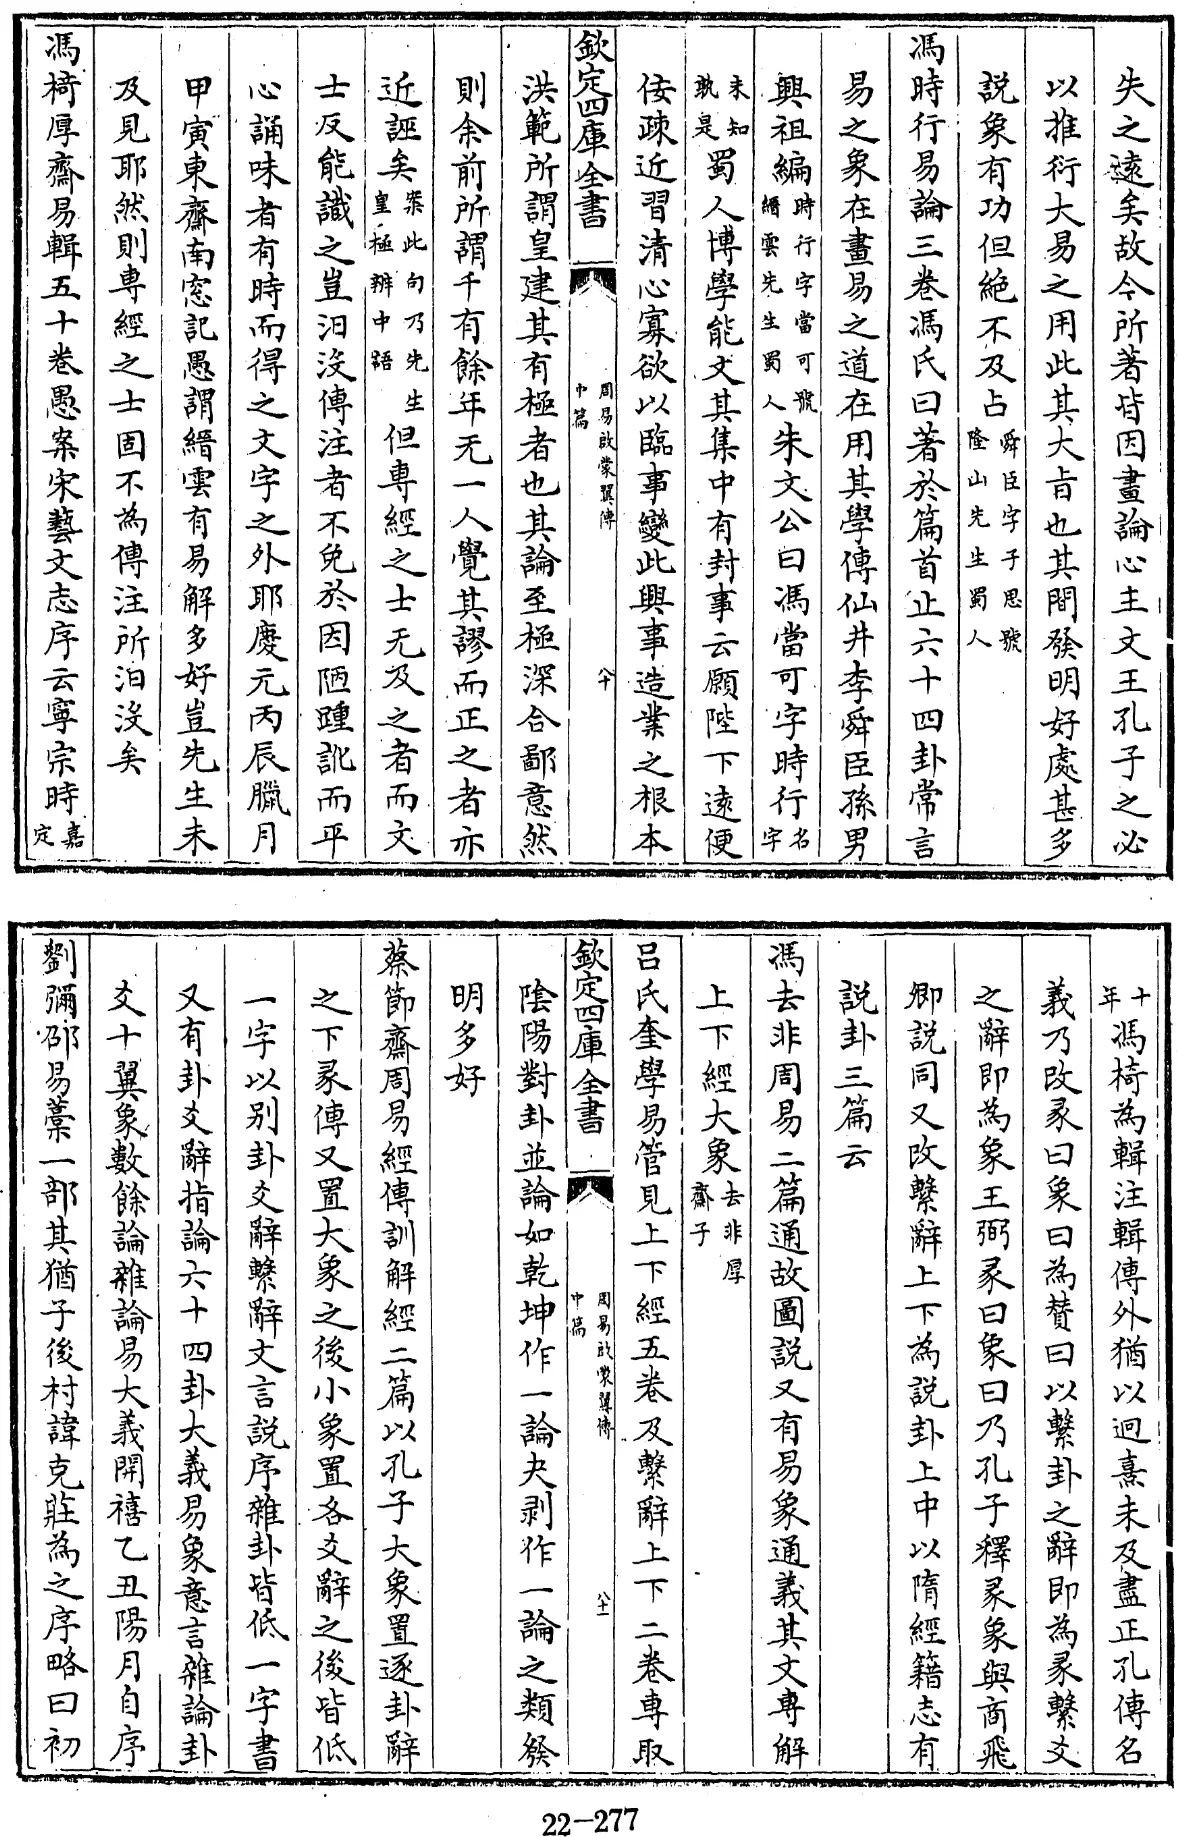 失之遠矣故今所著皆因畫論心主文王孔子之必
以推衍大易之用此其大旨也其間發明好處甚多
説象有功但絶不及占舜臣字子思號隆山先生蜀人
馮時行易論三卷馮氏曰著於篇首止六十四卦常言
易之象在畫易之道在用其學傳仙井李舜臣孫男
興祖編時行字當可號縉雲先生蜀人朱文公曰馮當可字時行名字
未知孰是蜀人博學能文其集中有封事云願陛下遠便
佞疎近習清心寡欲以臨事變此興事造業之根本
欽定四庫全書
周易啟蒙翼傳
中篇
八十
洪範所謂皇建其有極者也其論至極深合鄙意然
則余前所謂千有餘年无一人覺其謬而正之者亦
近誣矣案此句乃先生皇極辨中語但専經之士无及之者而文
士反能識之豈汨沒傳注者不免於因陋踵訛而平
心誦味者有時而得之文字之外耶慶元丙辰臘月
甲寅東齋南窓記愚謂縉雲有易解多好豈先生未
及見耶然則専經之士固不為傳注所汨沒矣
馮椅厚齋易輯五十卷愚案宋藝文志序云寧宗時嘉定
十年馮椅為輯注輯傳外猶以迥熹未及盡正孔傳名
義乃改彖曰象曰為賛曰以繫卦之辭即為彖繫爻
之辭即為象王弼彖曰象曰乃孔子釋彖象與商飛
卿説同又改繫辭上下為説卦上中以隋經籍志有
説卦三篇云
馮去非周易二篇通故圖説又有易象通義其文専解
上下經大象去非厚齋子
吕氏奎學易管見上下經五卷及繫辭上下二卷専取
欽定四庫全書
周易啟蒙翼傳
中篇
八十一
陰陽對卦並論如乾坤作一論夬剥作一論之類發
明多好
蔡節齋周易經傳訓解經二篇以孔子大象置逐卦辭
之下彖傳又置大象之後小象置各爻辭之後皆低
一字以别卦爻辭繫辭文言説序雜卦皆低一字書
又有卦爻辭指論六十四卦大義易象意言雜論卦
爻十翼象數餘論雜論易大義開禧乙丑陽月自序
劉彌邵易藁一部其猶子後村諱克莊為之序略曰初
22-277